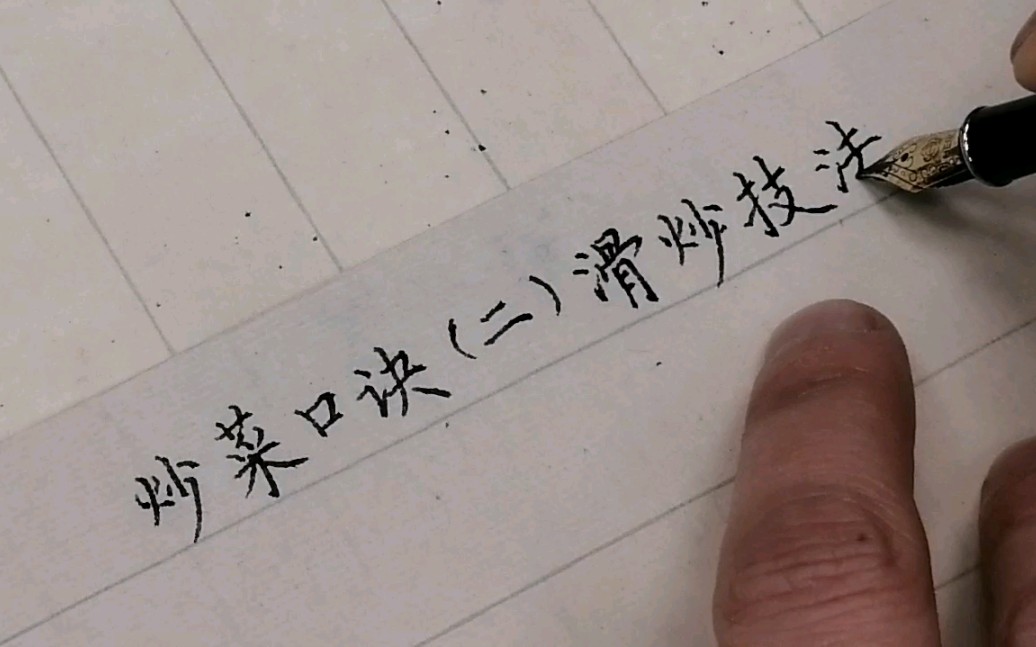 炒菜口诀(二)滑炒技法